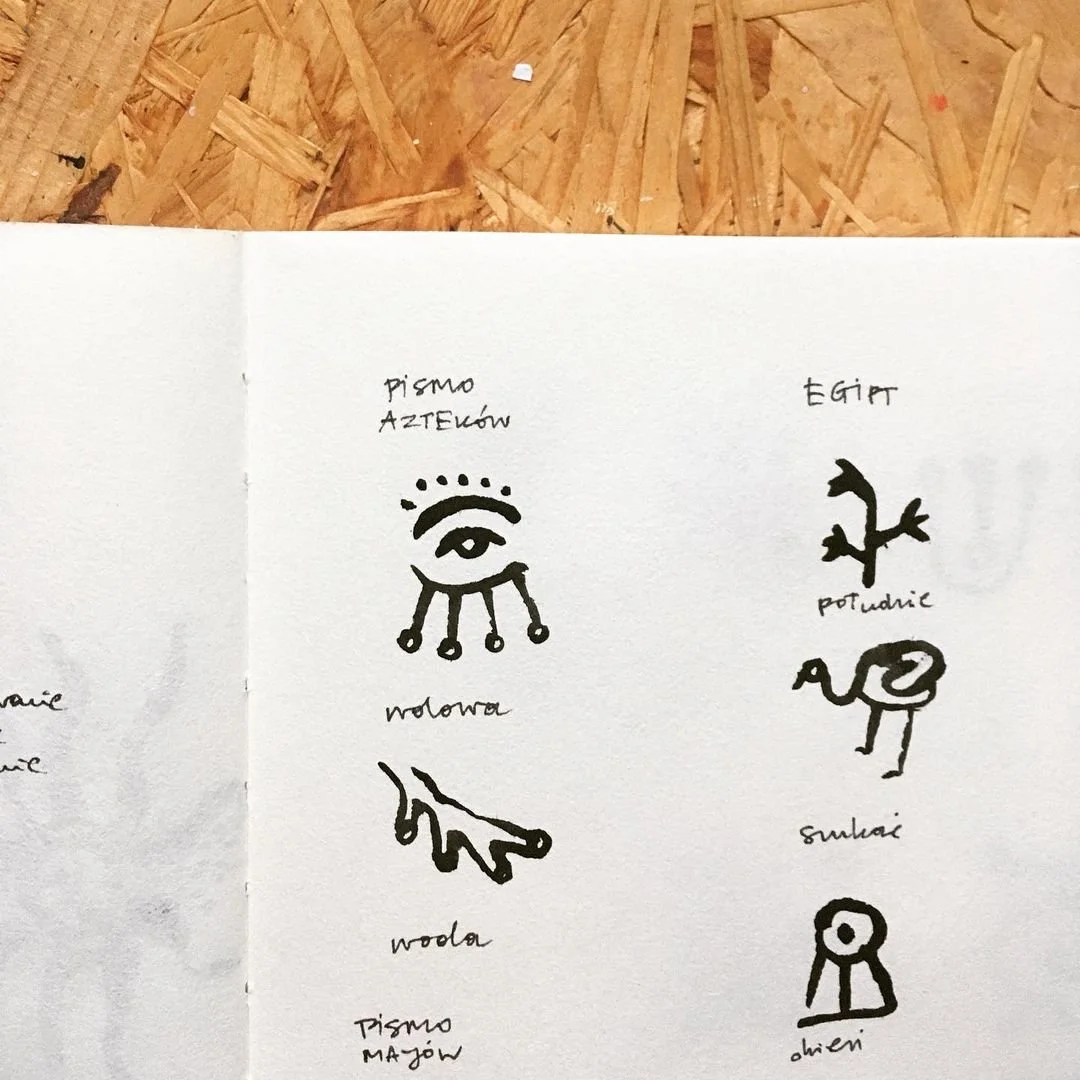 PISMO
AZTEKÓW
wdowa
woda
PISMO
MAJÓW
EGIPT
południe
szukać
dzień